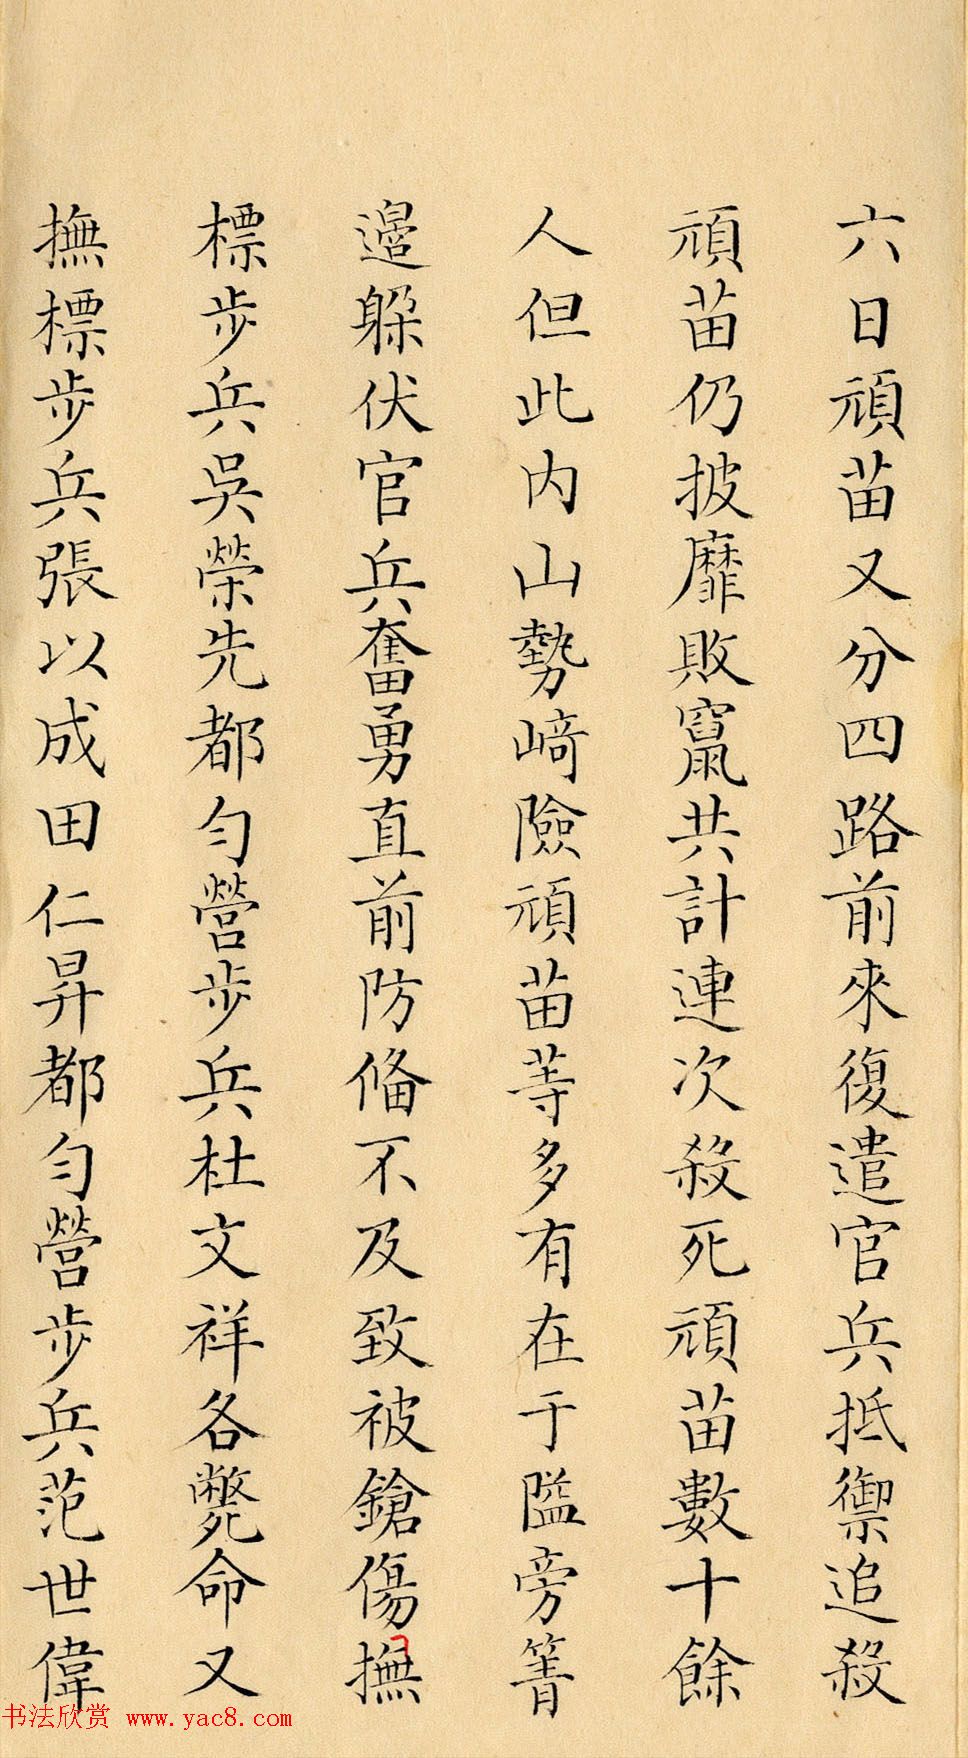 六日頑苗又分四路前來復遣官兵抵禦追殺
頑苗仍披靡敗竄共計連次殺死頑苗數十餘
人但此內山勢崎險頑苗等多有在于隘旁箐
邊躲伏官兵奮勇直前防俻不及致被鎗傷撫
標步兵吳榮先都勻營步兵杜文祥各斃命又
撫標步兵張以成田仁昇都勻營步兵范世偉
书法欣赏 www.yac8.com